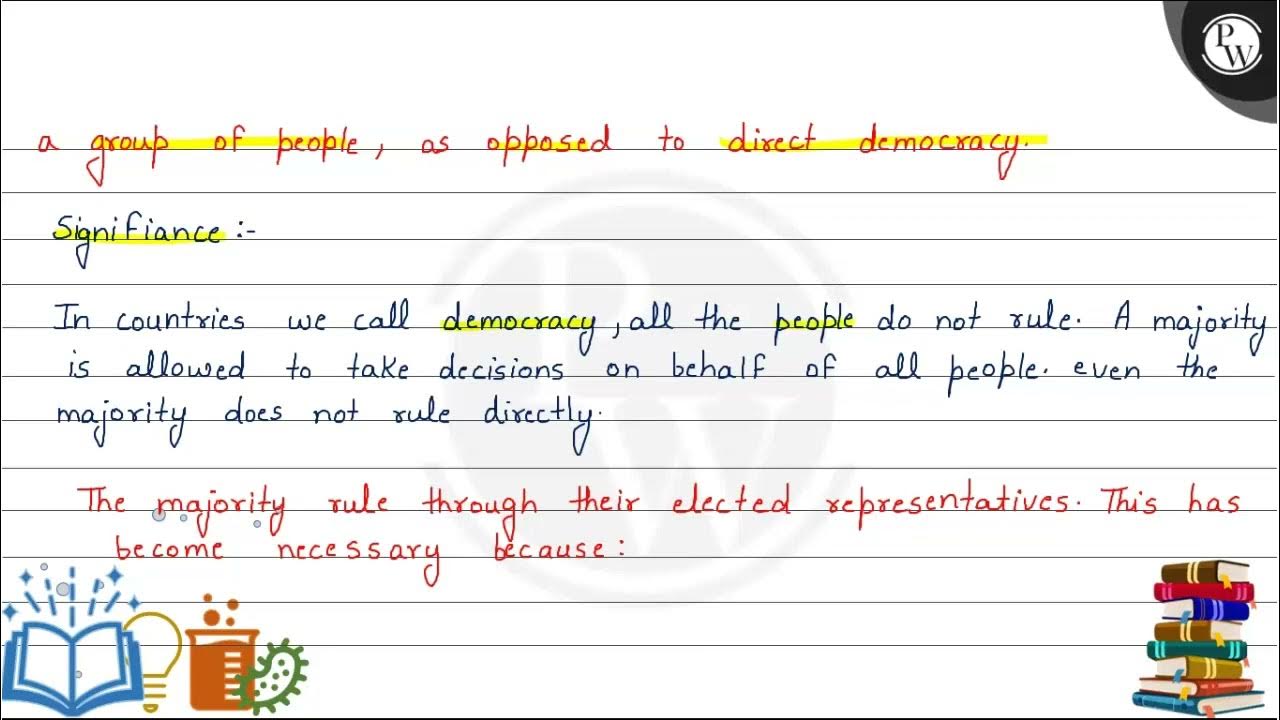 PW
a group of people, as opposed to direct democracy.
Signifiance :-
In countries we call democracy, all the people do not rule. A majority
is allowed to take decisions on behalf of all people. even the
majority does not rule directly.
The majority rule through their elected representatives. This has
become necessary because :